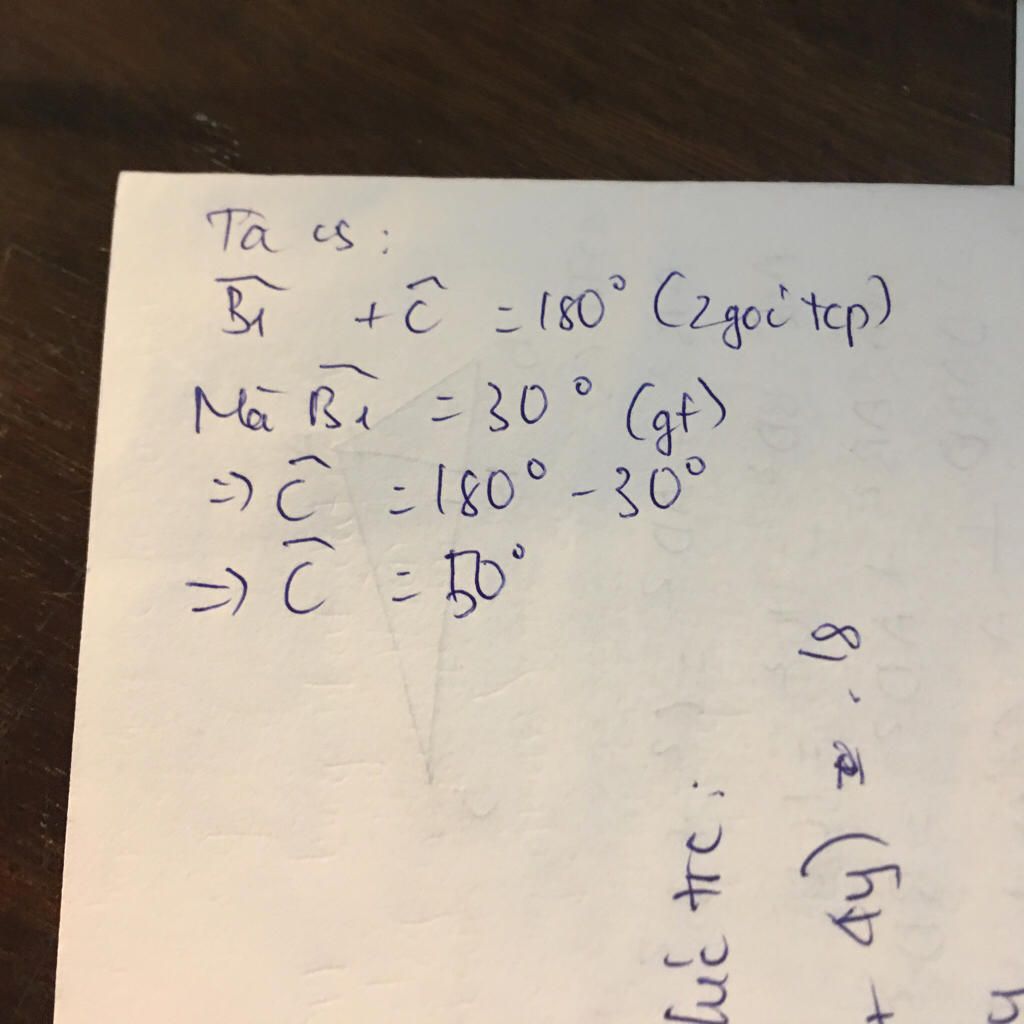 Ta có:
B̂₁ + Ĉ = 180° (2 góc tcp)
Mà B̂₁ = 30° (gt)
=> Ĉ = 180° - 30°
=> Ĉ = 50°
trc:
+ 4y) = . 18
y